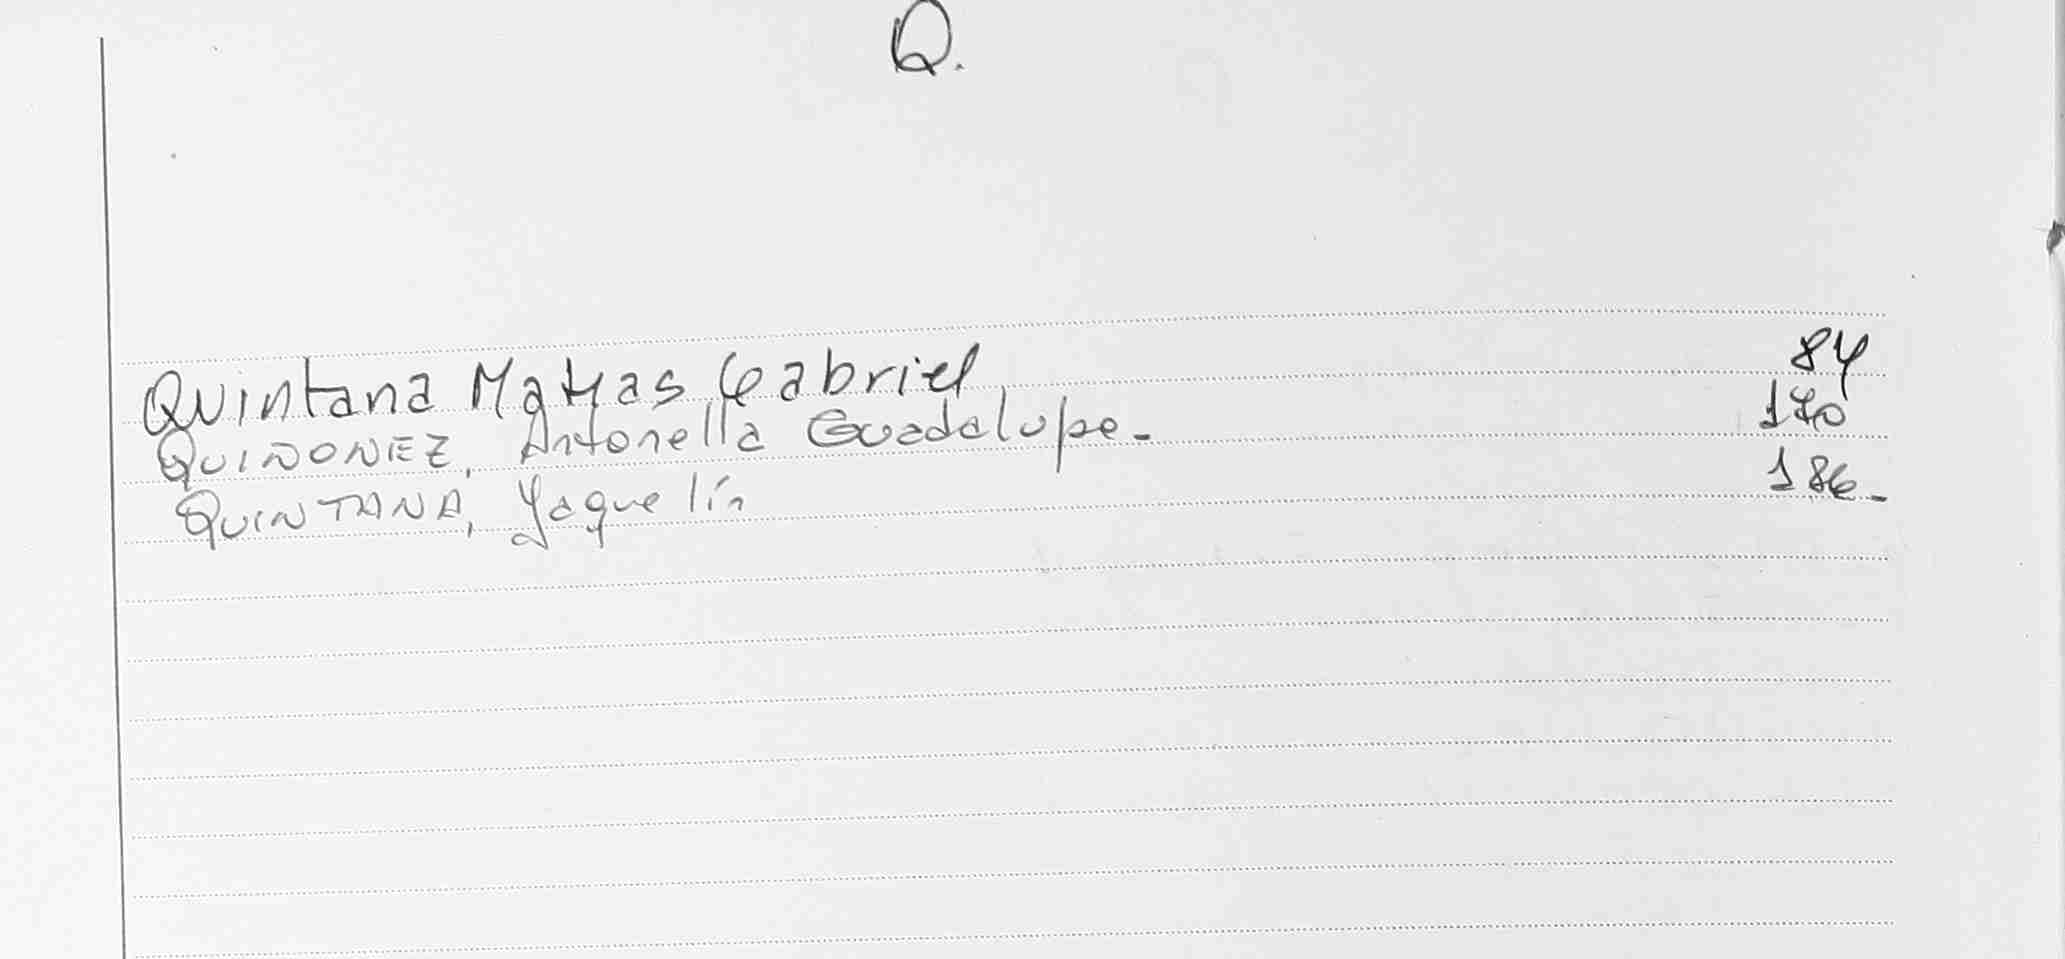 Q.
Quintana Matias Gabriel 84
QUINONEZ, Antonella Guadalupe. 170
QUINTANA, Yaquelín 186.